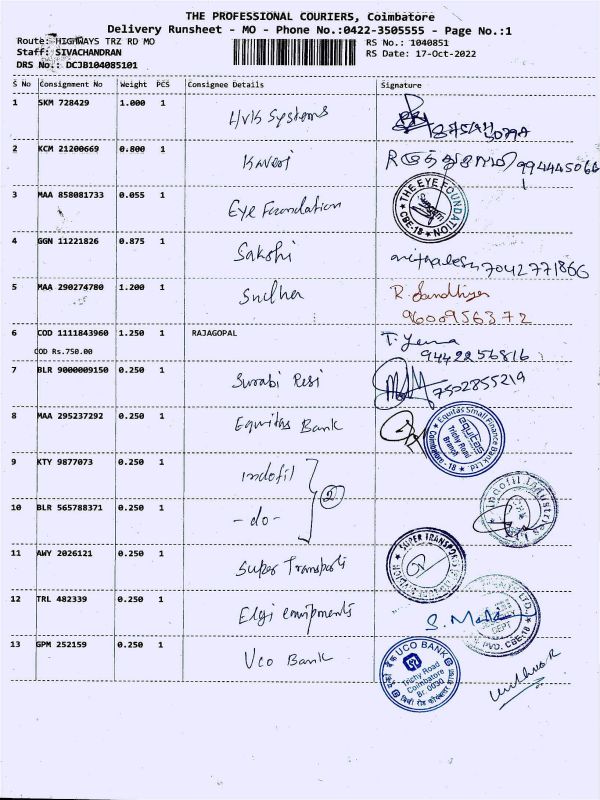 THE PROFESSIONAL COURIERS, Coimbatore
Delivery Runsheet - MO - Phone No.:0422-3505555 - Page No.:1
Route: HIGHWAYS TRZ RD MO
RS No.: 1040851
Staff: SIVACHANDRAN
RS Date: 17-Oct-2022
DRS No.: DCJB104085101
S No Consignment No Weight PCS Consignee Details Signature
1 SKM 728429 1.000 1 Systems
2 KCM 21200669 0.800 1 Kaveri
3 MAA 858081733 0.055 1 Eye Foundation THE EYE FOUNDATION CBE-18
4 GGN 11221826 0.875 1 Sakshi 7042771866
5 MAA 290274780 1.200 1 Sudha R. Sandhiya
9600956372
6 COD 1111843960 1.250 1 RAJAGOPAL T.
COD Rs.750.00 9442256816
7 BLR 9000009150 0.250 1 Surabi Resi 7502855219
8 MAA 295237292 0.250 1 Equitas Bank Equitas Small Finance Bank Ltd equitas Trichy Road Branch Coimbatore - 18
9 KTY 9877073 0.250 1 Indofil 2 Indofil Industries
10 BLR 565788371 0.250 1 -do-
11 AWY 2026121 0.250 1 Super Transports SUPER TRANSPORT
12 TRL 482339 0.250 1 Elgi equipments S. DEPT PVD. CBE-18
13 GPM 252159 0.250 1 Uco Bank UCO BANK Trichy Road Coimbatore Br. 0030